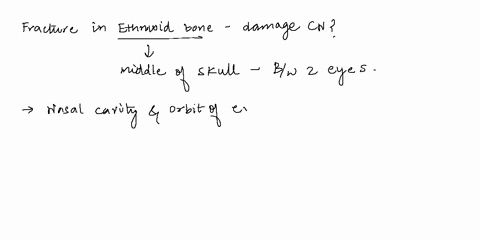 Fracture in Ethmoid bone - damage CN?
middle of skull - B/W 2 eyes.
→ Nasal cavity & orbit of e